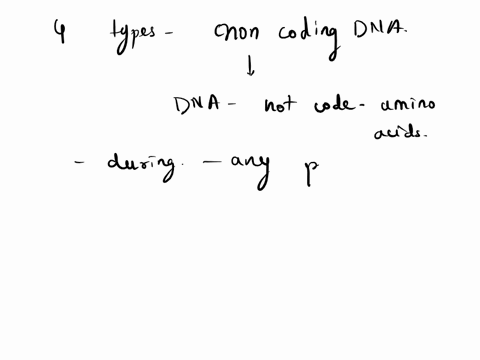 4 types - non coding DNA.
↓
DNA - not code - amino
acids.
- during. - any p